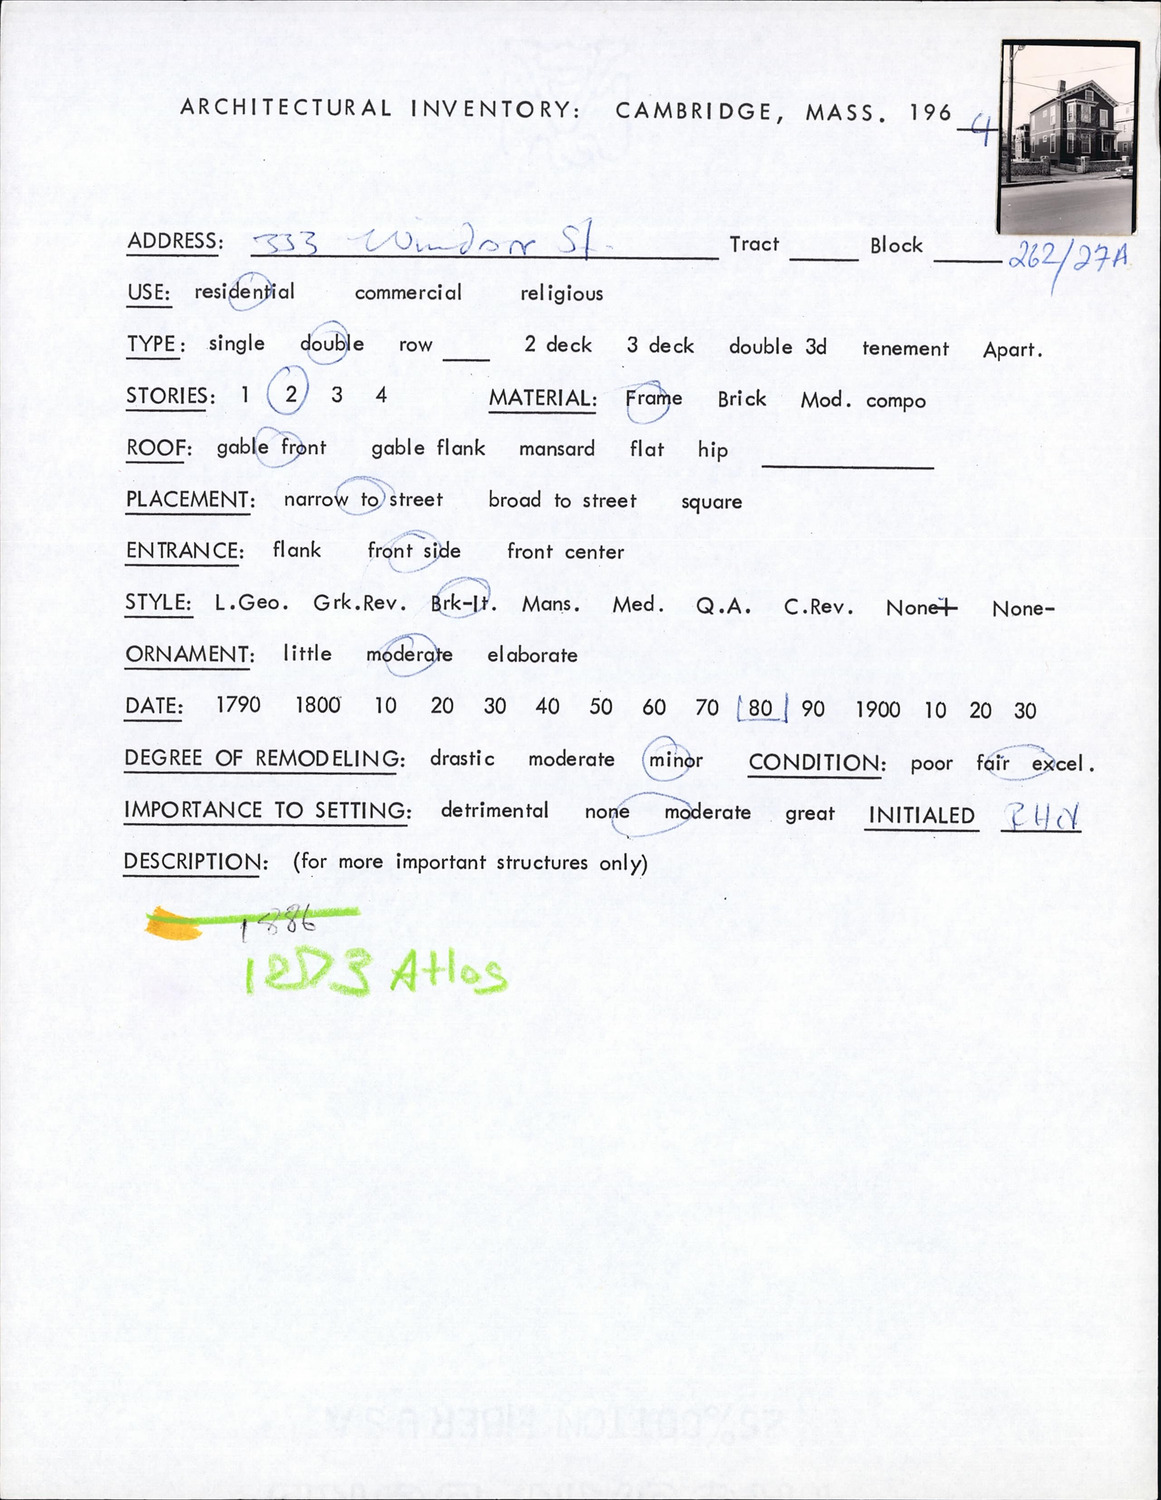 ARCHITECTURAL INVENTORY: CAMBRIDGE, MASS. 1964
ADDRESS: 333 Windsor St. Tract Block 262/27A
USE: residential commercial religious
TYPE: single double row 2 deck 3 deck double 3d tenement Apart.
STORIES: 1 2 3 4 MATERIAL: Frame Brick Mod. compo
ROOF: gable front gable flank mansard flat hip
PLACEMENT: narrow to street broad to street square
ENTRANCE: flank front side front center
STYLE: L.Geo. Grk.Rev. Brk-It. Mans. Med. Q.A. C.Rev. None+ None-
ORNAMENT: little moderate elaborate
DATE: 1790 1800 10 20 30 40 50 60 70 80 90 1900 10 20 30
DEGREE OF REMODELING: drastic moderate minor CONDITION: poor fair excel.
IMPORTANCE TO SETTING: detrimental none moderate great INITIALED RHN
DESCRIPTION: (for more important structures only)
1886
Atlas